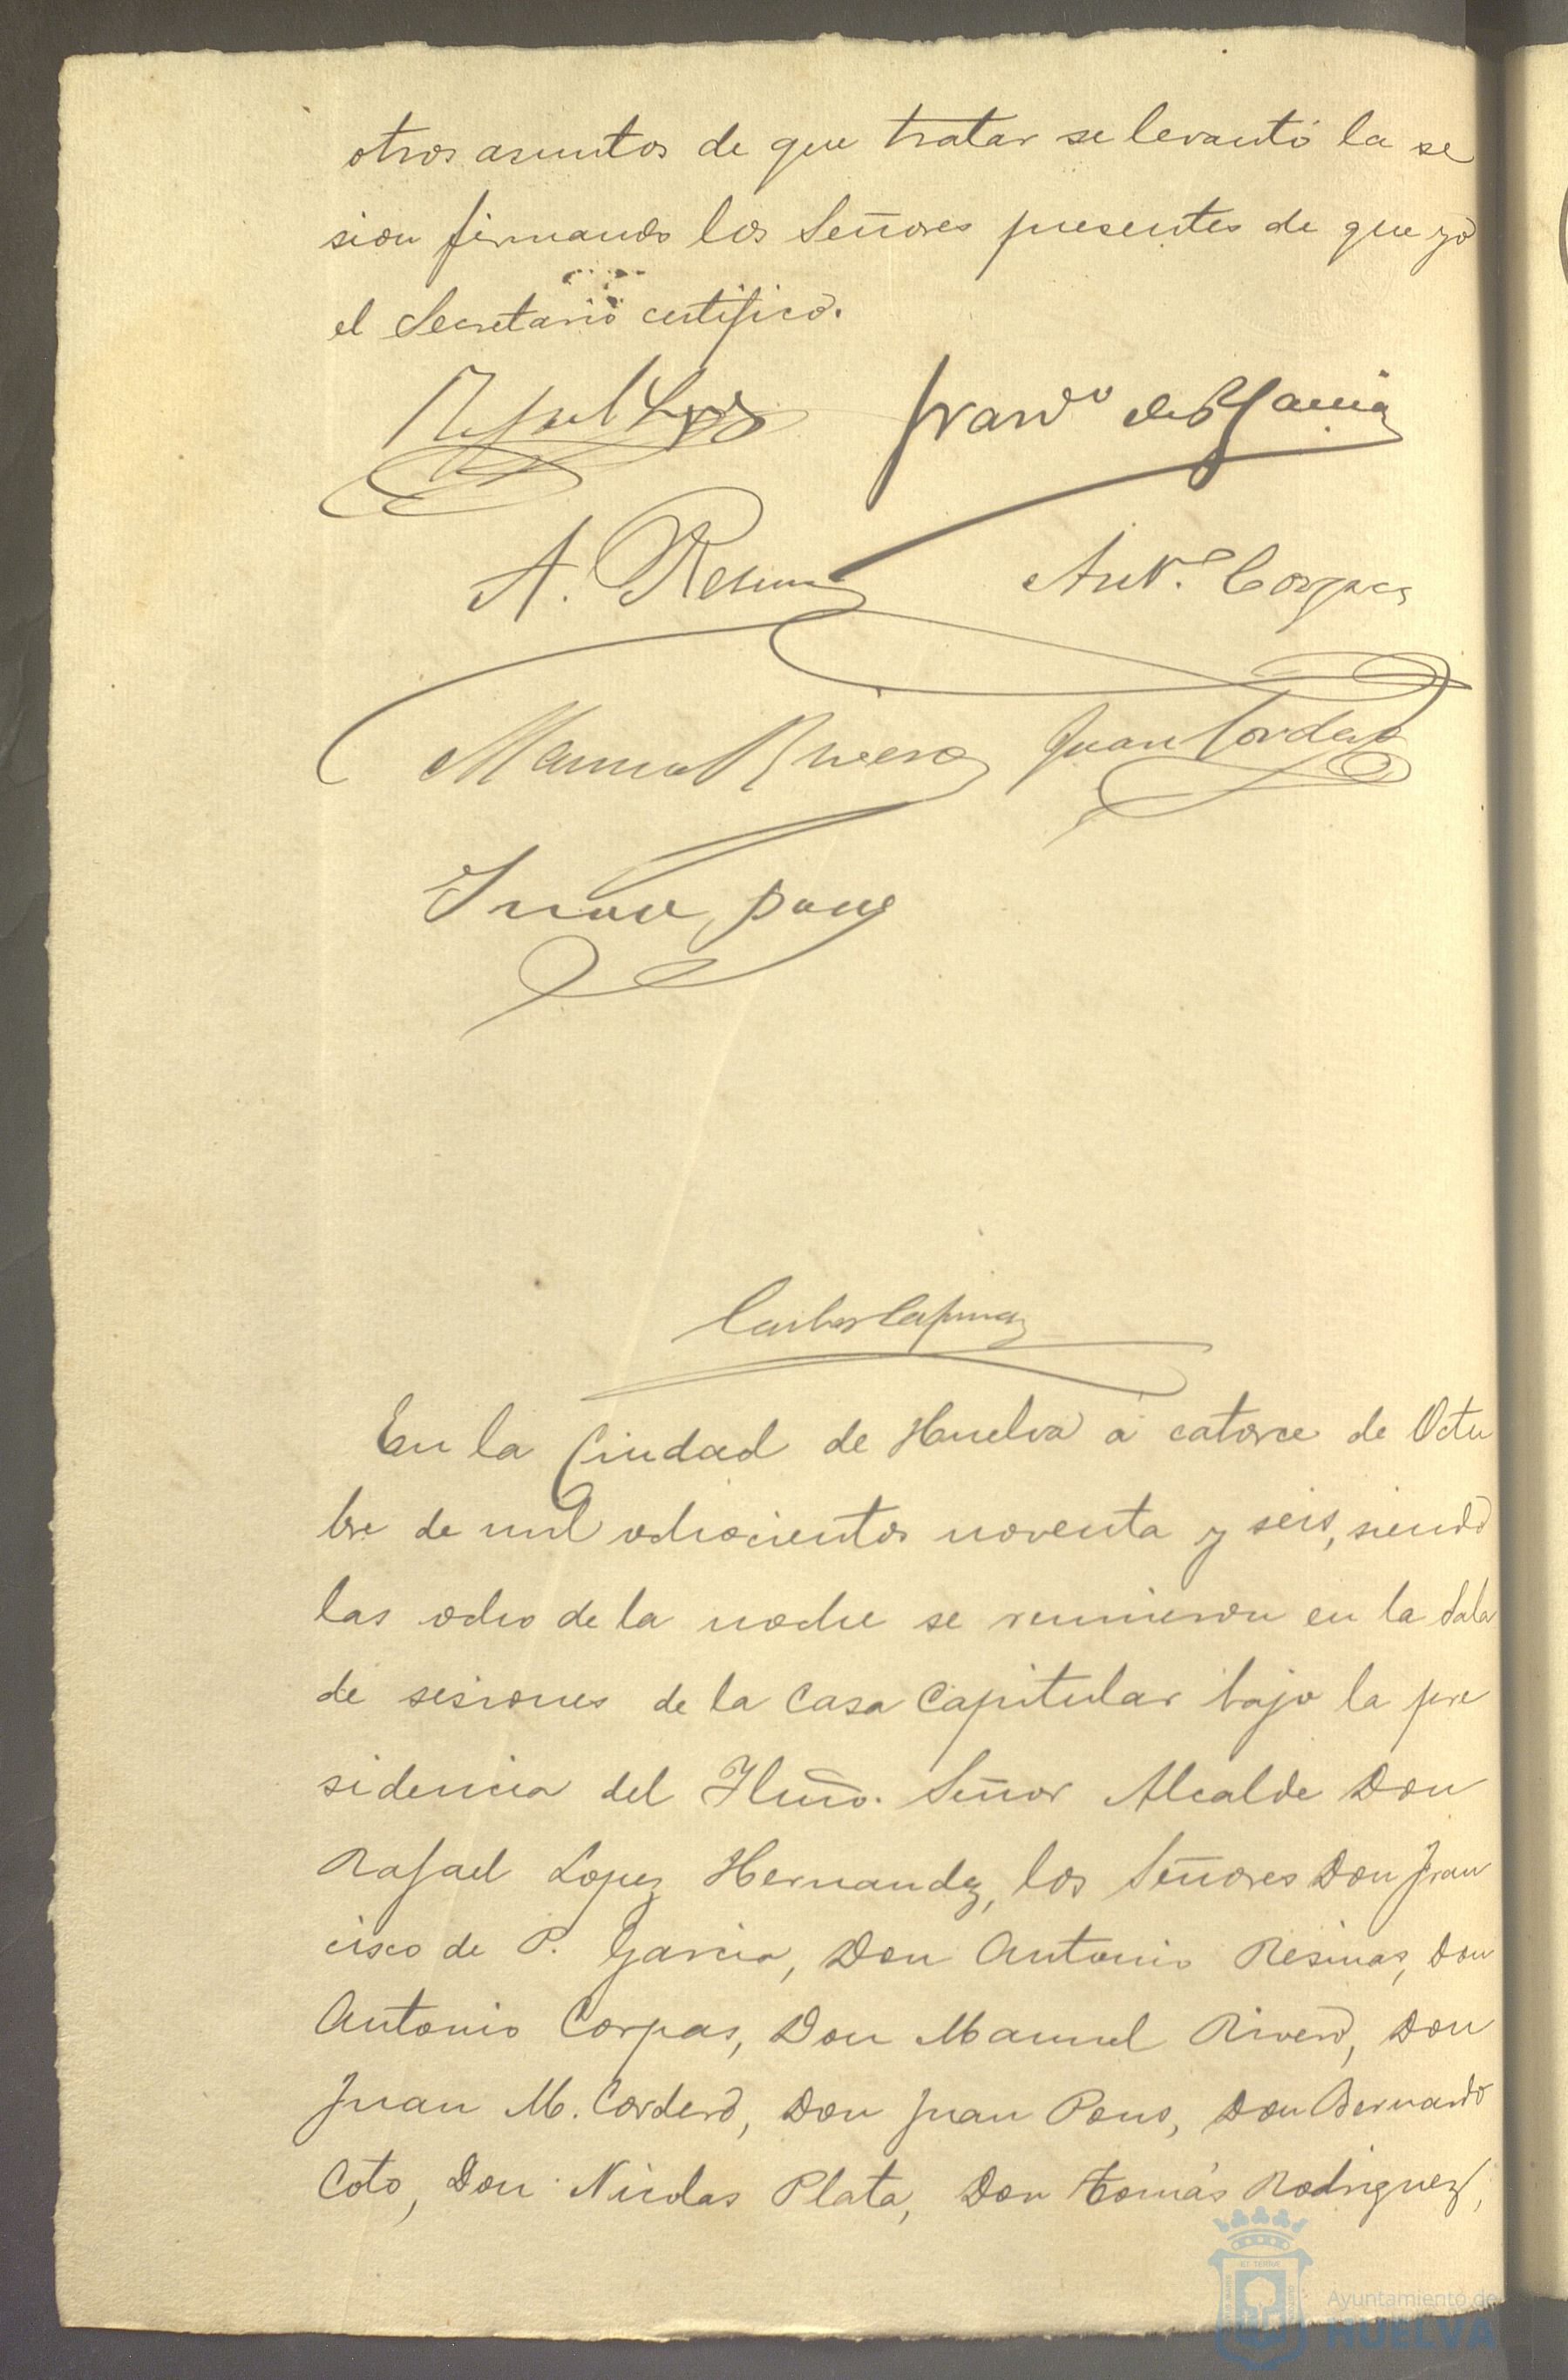 otros asuntos de que tratar se levantó la se
sion firmando los Señores presentes de que yo
el Secretario certifico.
Rafael Lopez
Franco de P Garcia
A. Resinas
Anto. Corpas
Manuel Rivero
Juan Cordero
Juan Pons
En la Ciudad de Huelva á catorce de Octu
bre de mil ochocientos noventa y seis, siendo
las ocho de la noche se reunieron en la Sala
de sesiones de la Casa Capitular bajo la pre
sidencia del Iltmo. Señor Alcalde Don
Rafael Lopez Hernandez, los Señores Don Fran
cisco de P. Garcia, Don Antonio Resinas, Don
Antonio Corpas, Don Manuel Rivero, Don
Juan M. Cordero, Don Juan Pons, Don Bernardo
Coto, Don Nicolas Plata, Don Tomás Rodriguez,
Ayuntamiento de
HUELVA